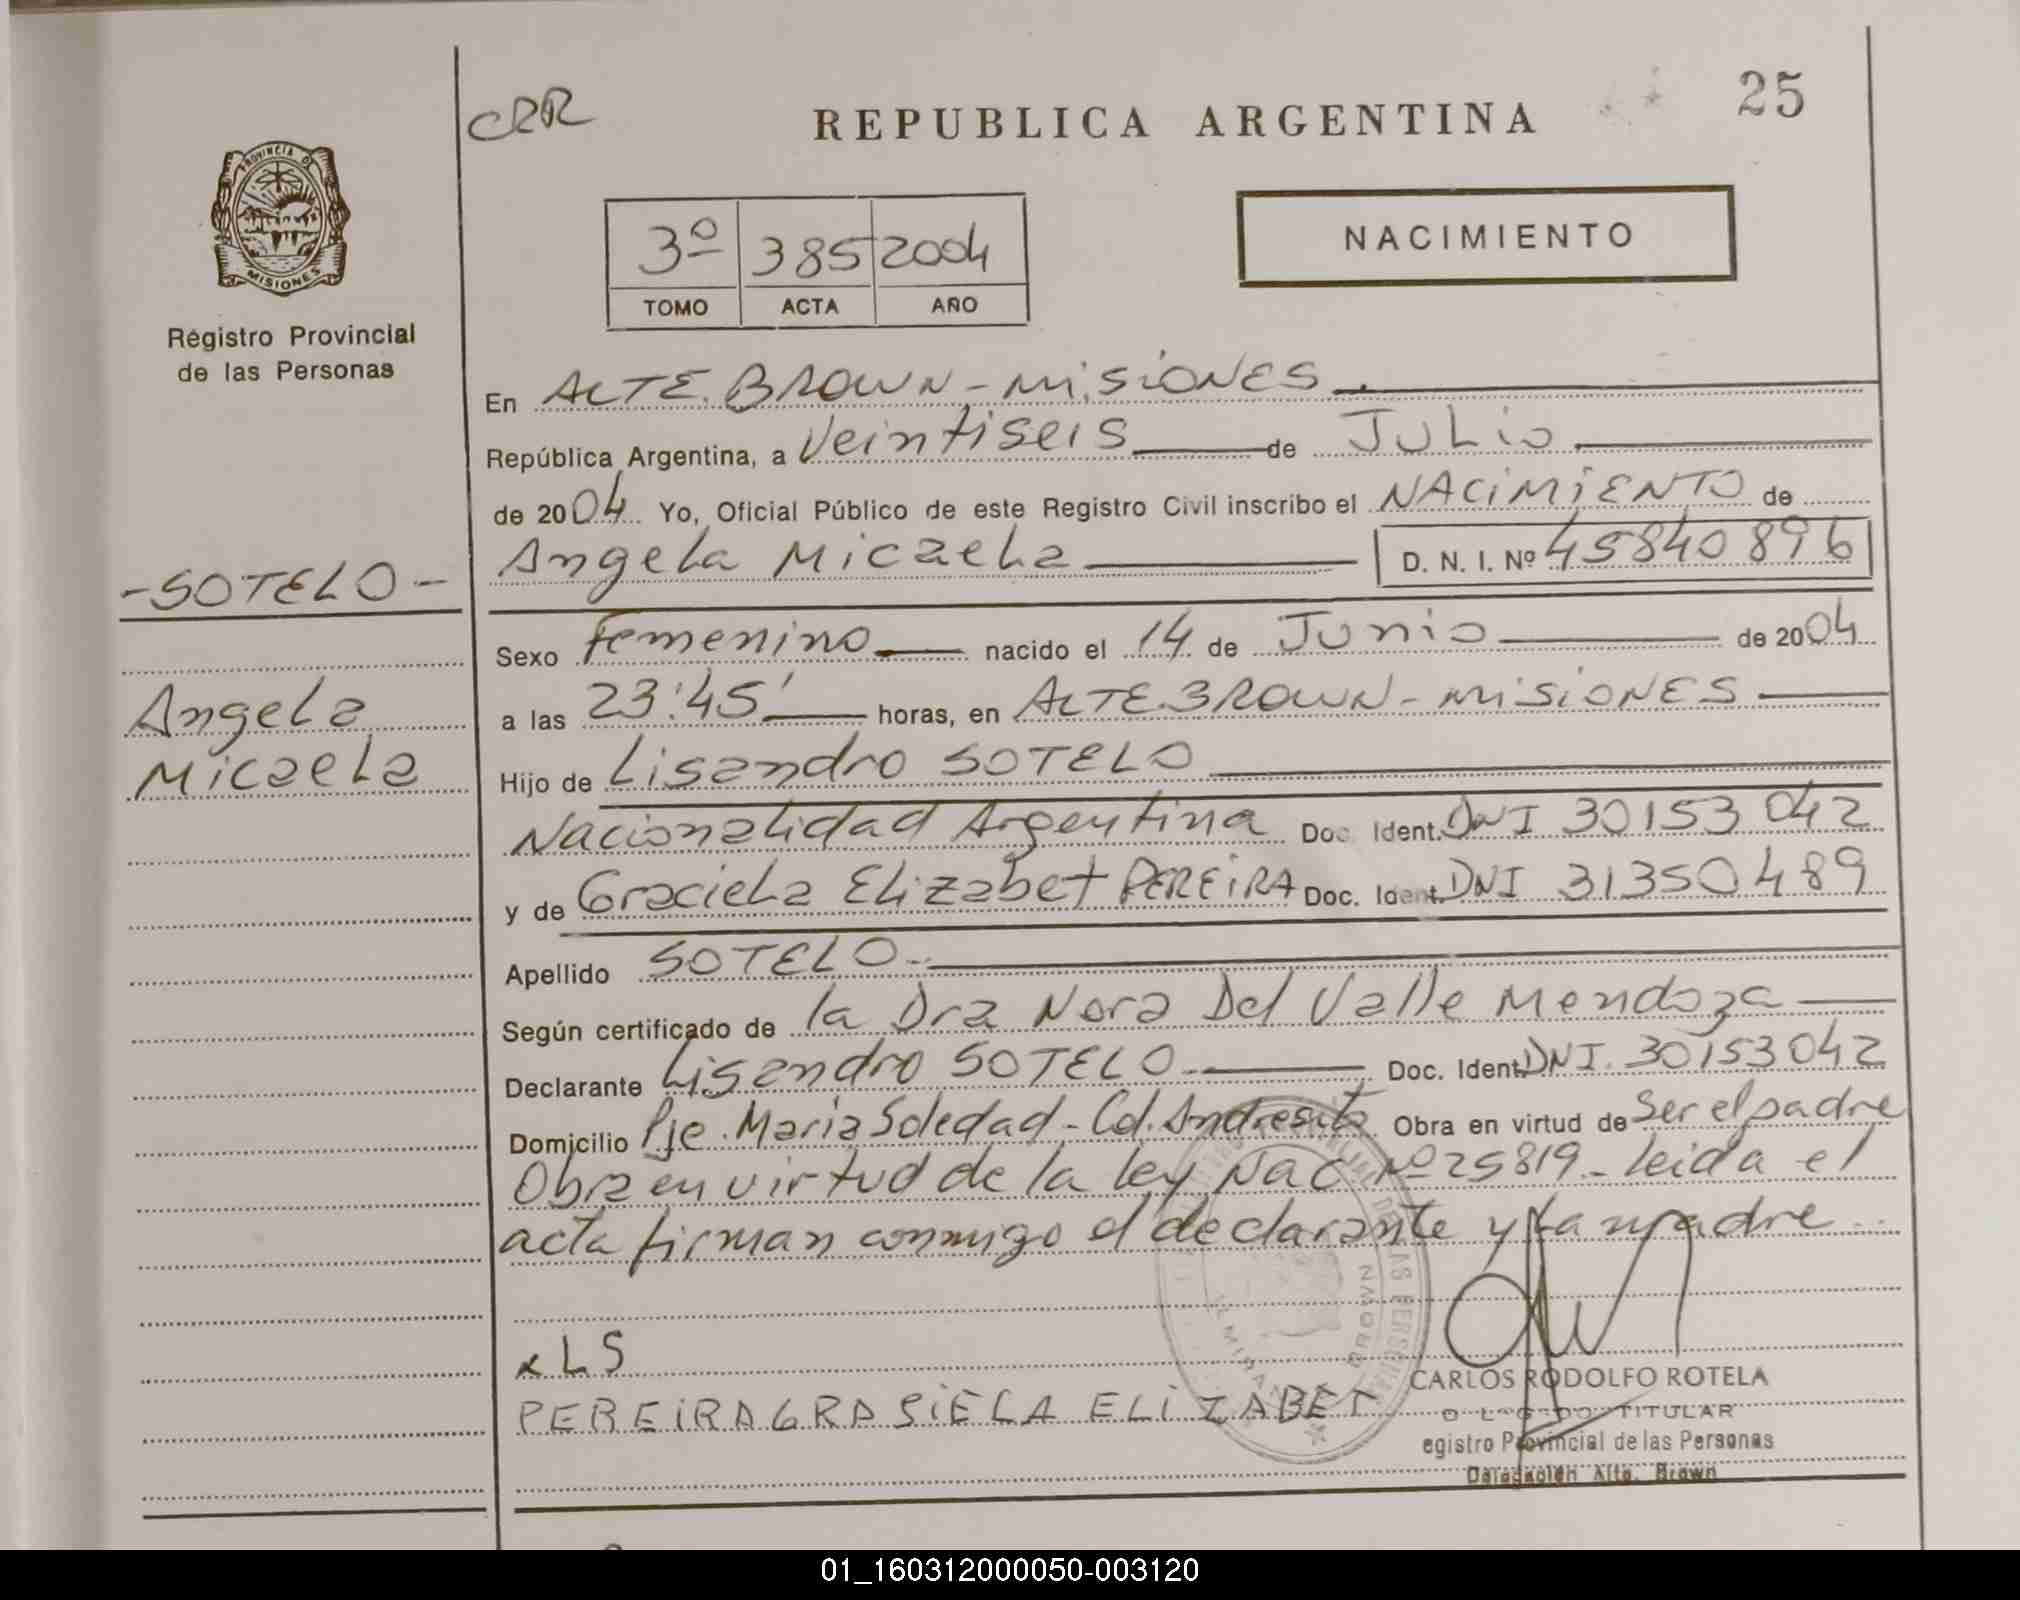 CRR
REPUBLICA ARGENTINA
25
PROVINCIA DE
MISIONES
Registro Provincial
de las Personas
3º 385 2004
TOMO ACTA AÑO
NACIMIENTO
En ALTE. BROWN - MISIONES
República Argentina, a Veintiseis de Julio
de 2004 Yo, Oficial Público de este Registro Civil inscribo el NACIMIENTO de
Angela Micaela D. N. I. Nº 45840896
- SOTELO -
Angela
Micaela
Sexo Femenino nacido el 14 de Junio de 2004
a las 23:45' horas, en ALTE. BROWN - MISIONES
Hijo de Lisandro SOTELO
Nacionalidad Argentina Doc. Ident. DNI 30153042
y de Graciela Elizabet PEREIRA Doc. Ident. DNI 31350489
Apellido SOTELO
Según certificado de la Dra Nora Del Valle Mendoza
Declarante Lisandro SOTELO Doc. Ident. DNI. 30153042
Domicilio Pje. Maria Soledad - Col. Andresito Obra en virtud de Ser el padre
Obra en virtud de la ley Nac Nº 25819 - leida el
acta firman conmigo el declarante y la madre
x LS
PEREIRA GRASIELA ELIZABET
CARLOS RODOLFO ROTELA
TITULAR
egistro Provincial de las Personas
Delegación Alte. Brown
BROWN
01_160312000050-003120